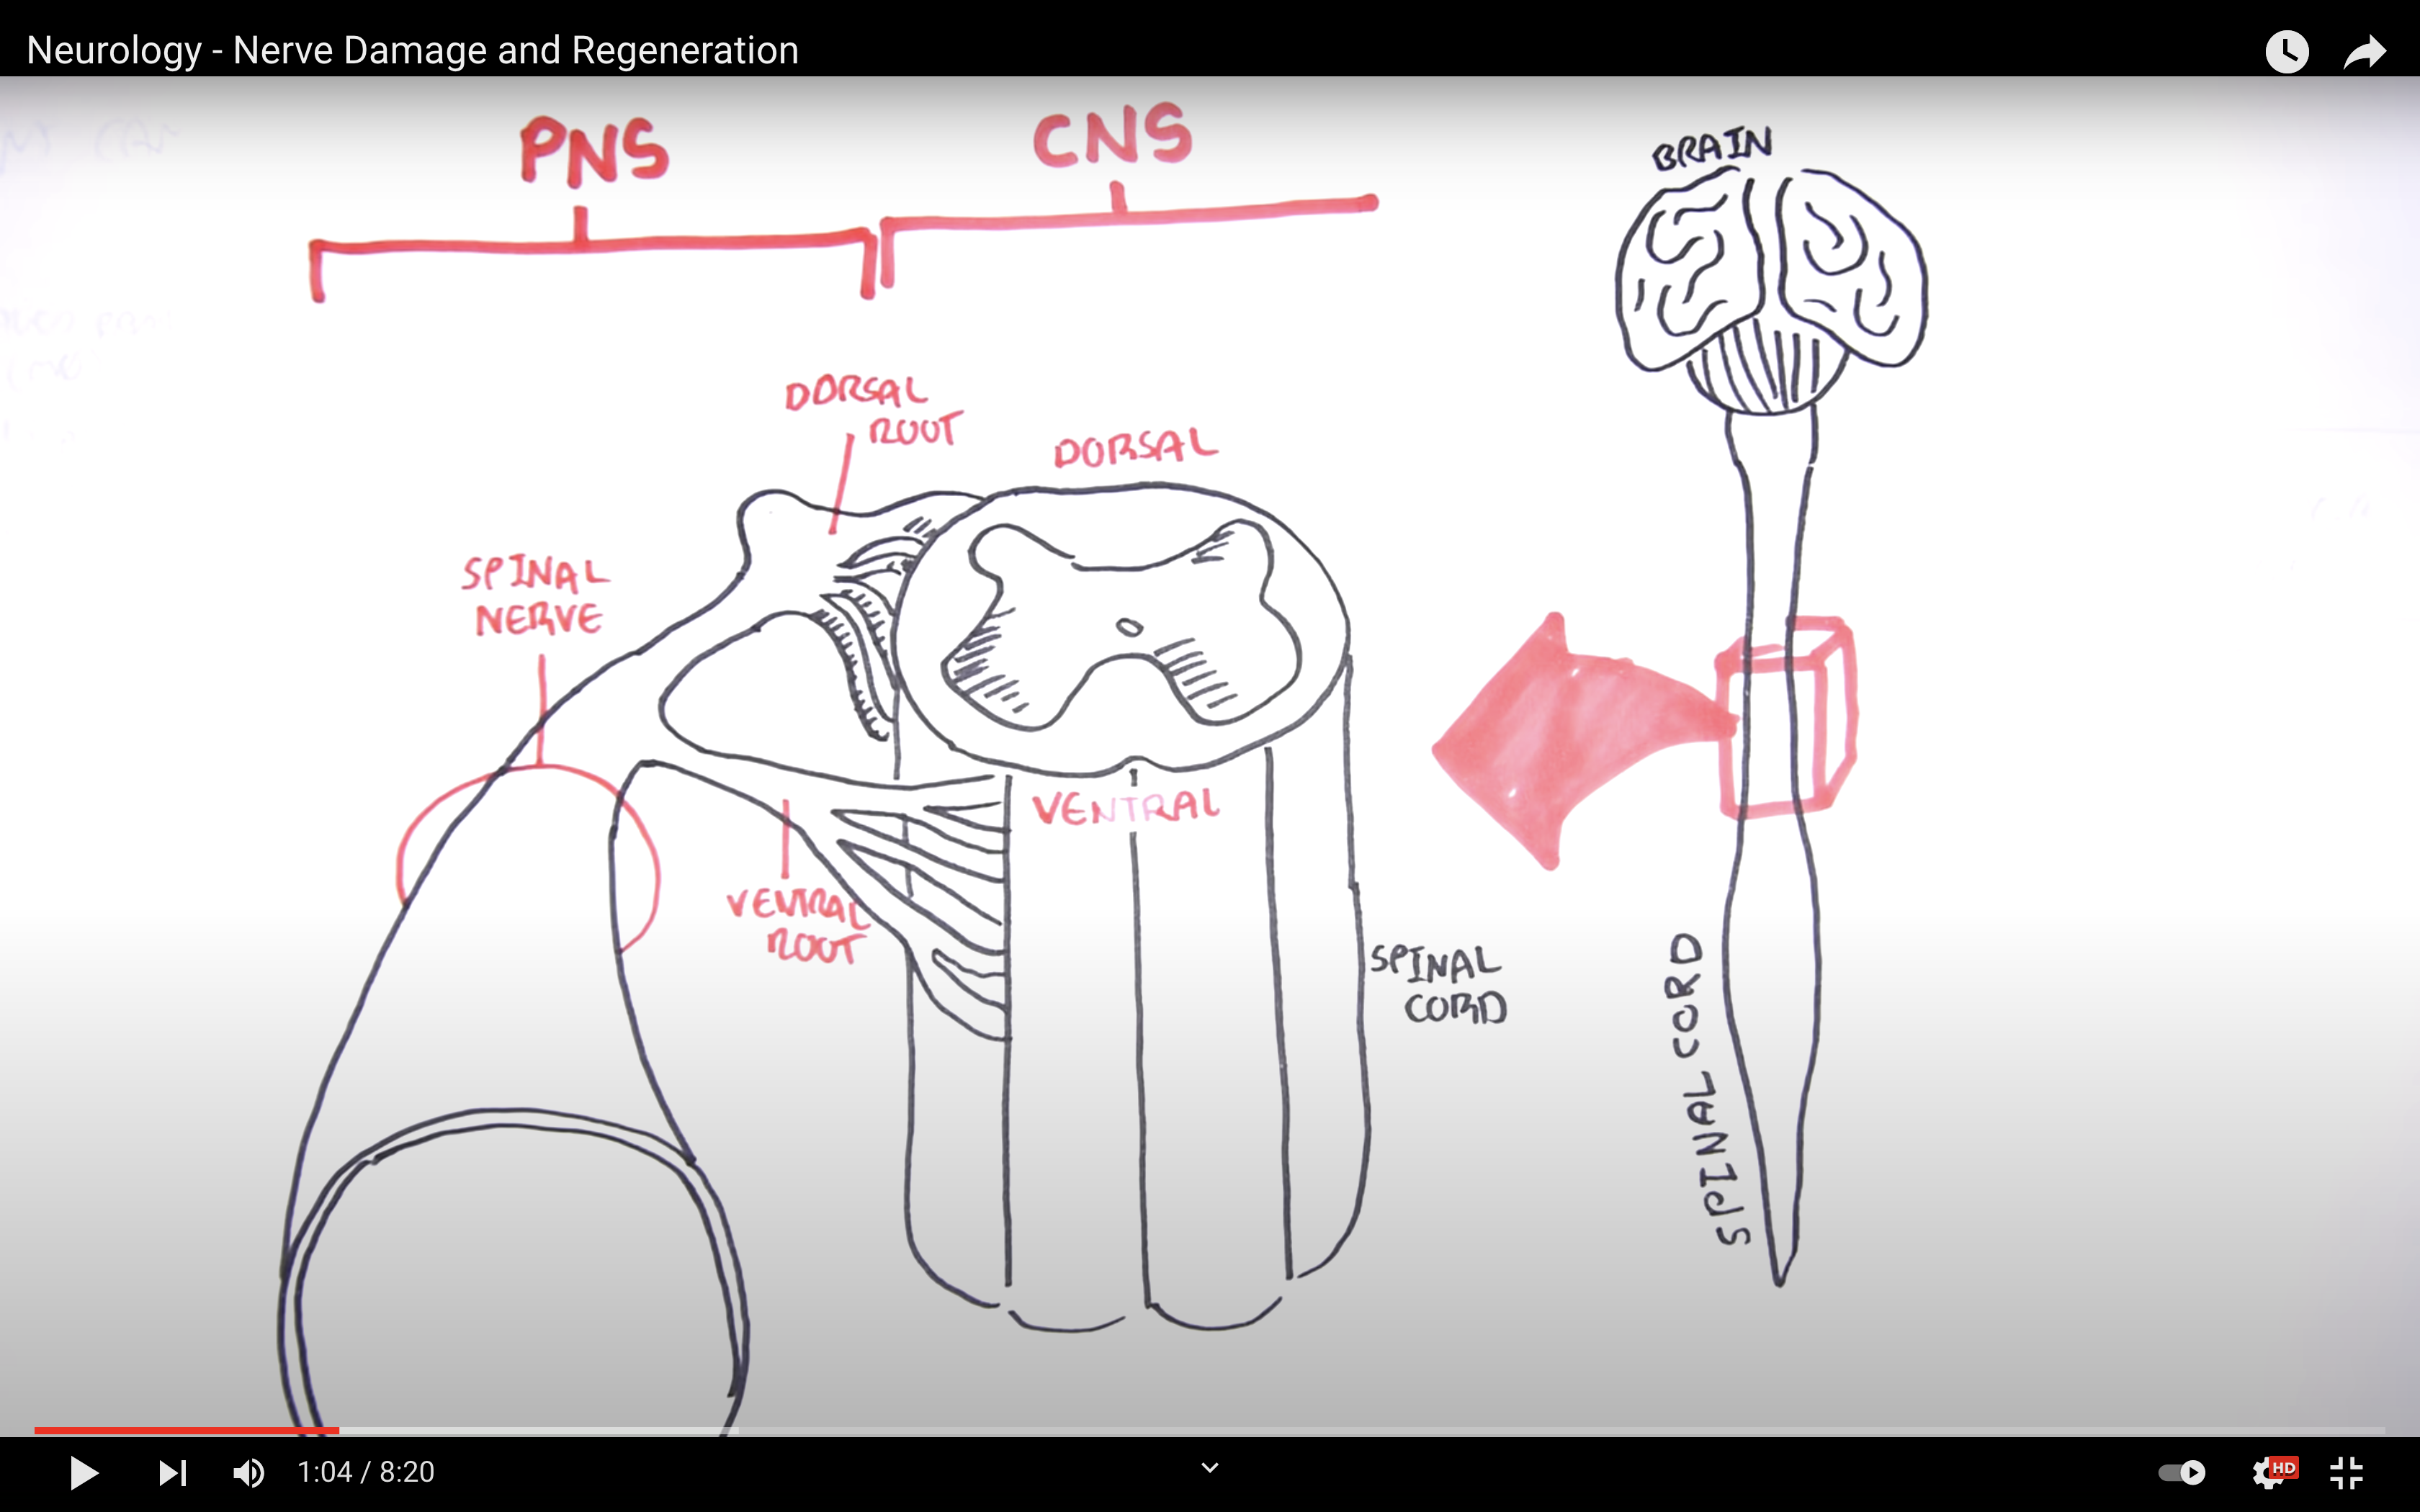 Neurology - Nerve Damage and Regeneration
PNS
CNS
BRAIN
DORSAL
ROOT
DORSAL
SPINAL
NERVE
VENTRAL
VENTRAL
ROOT
SPINAL
CORD
SPINAL CORD
1:04 / 8:20
HD